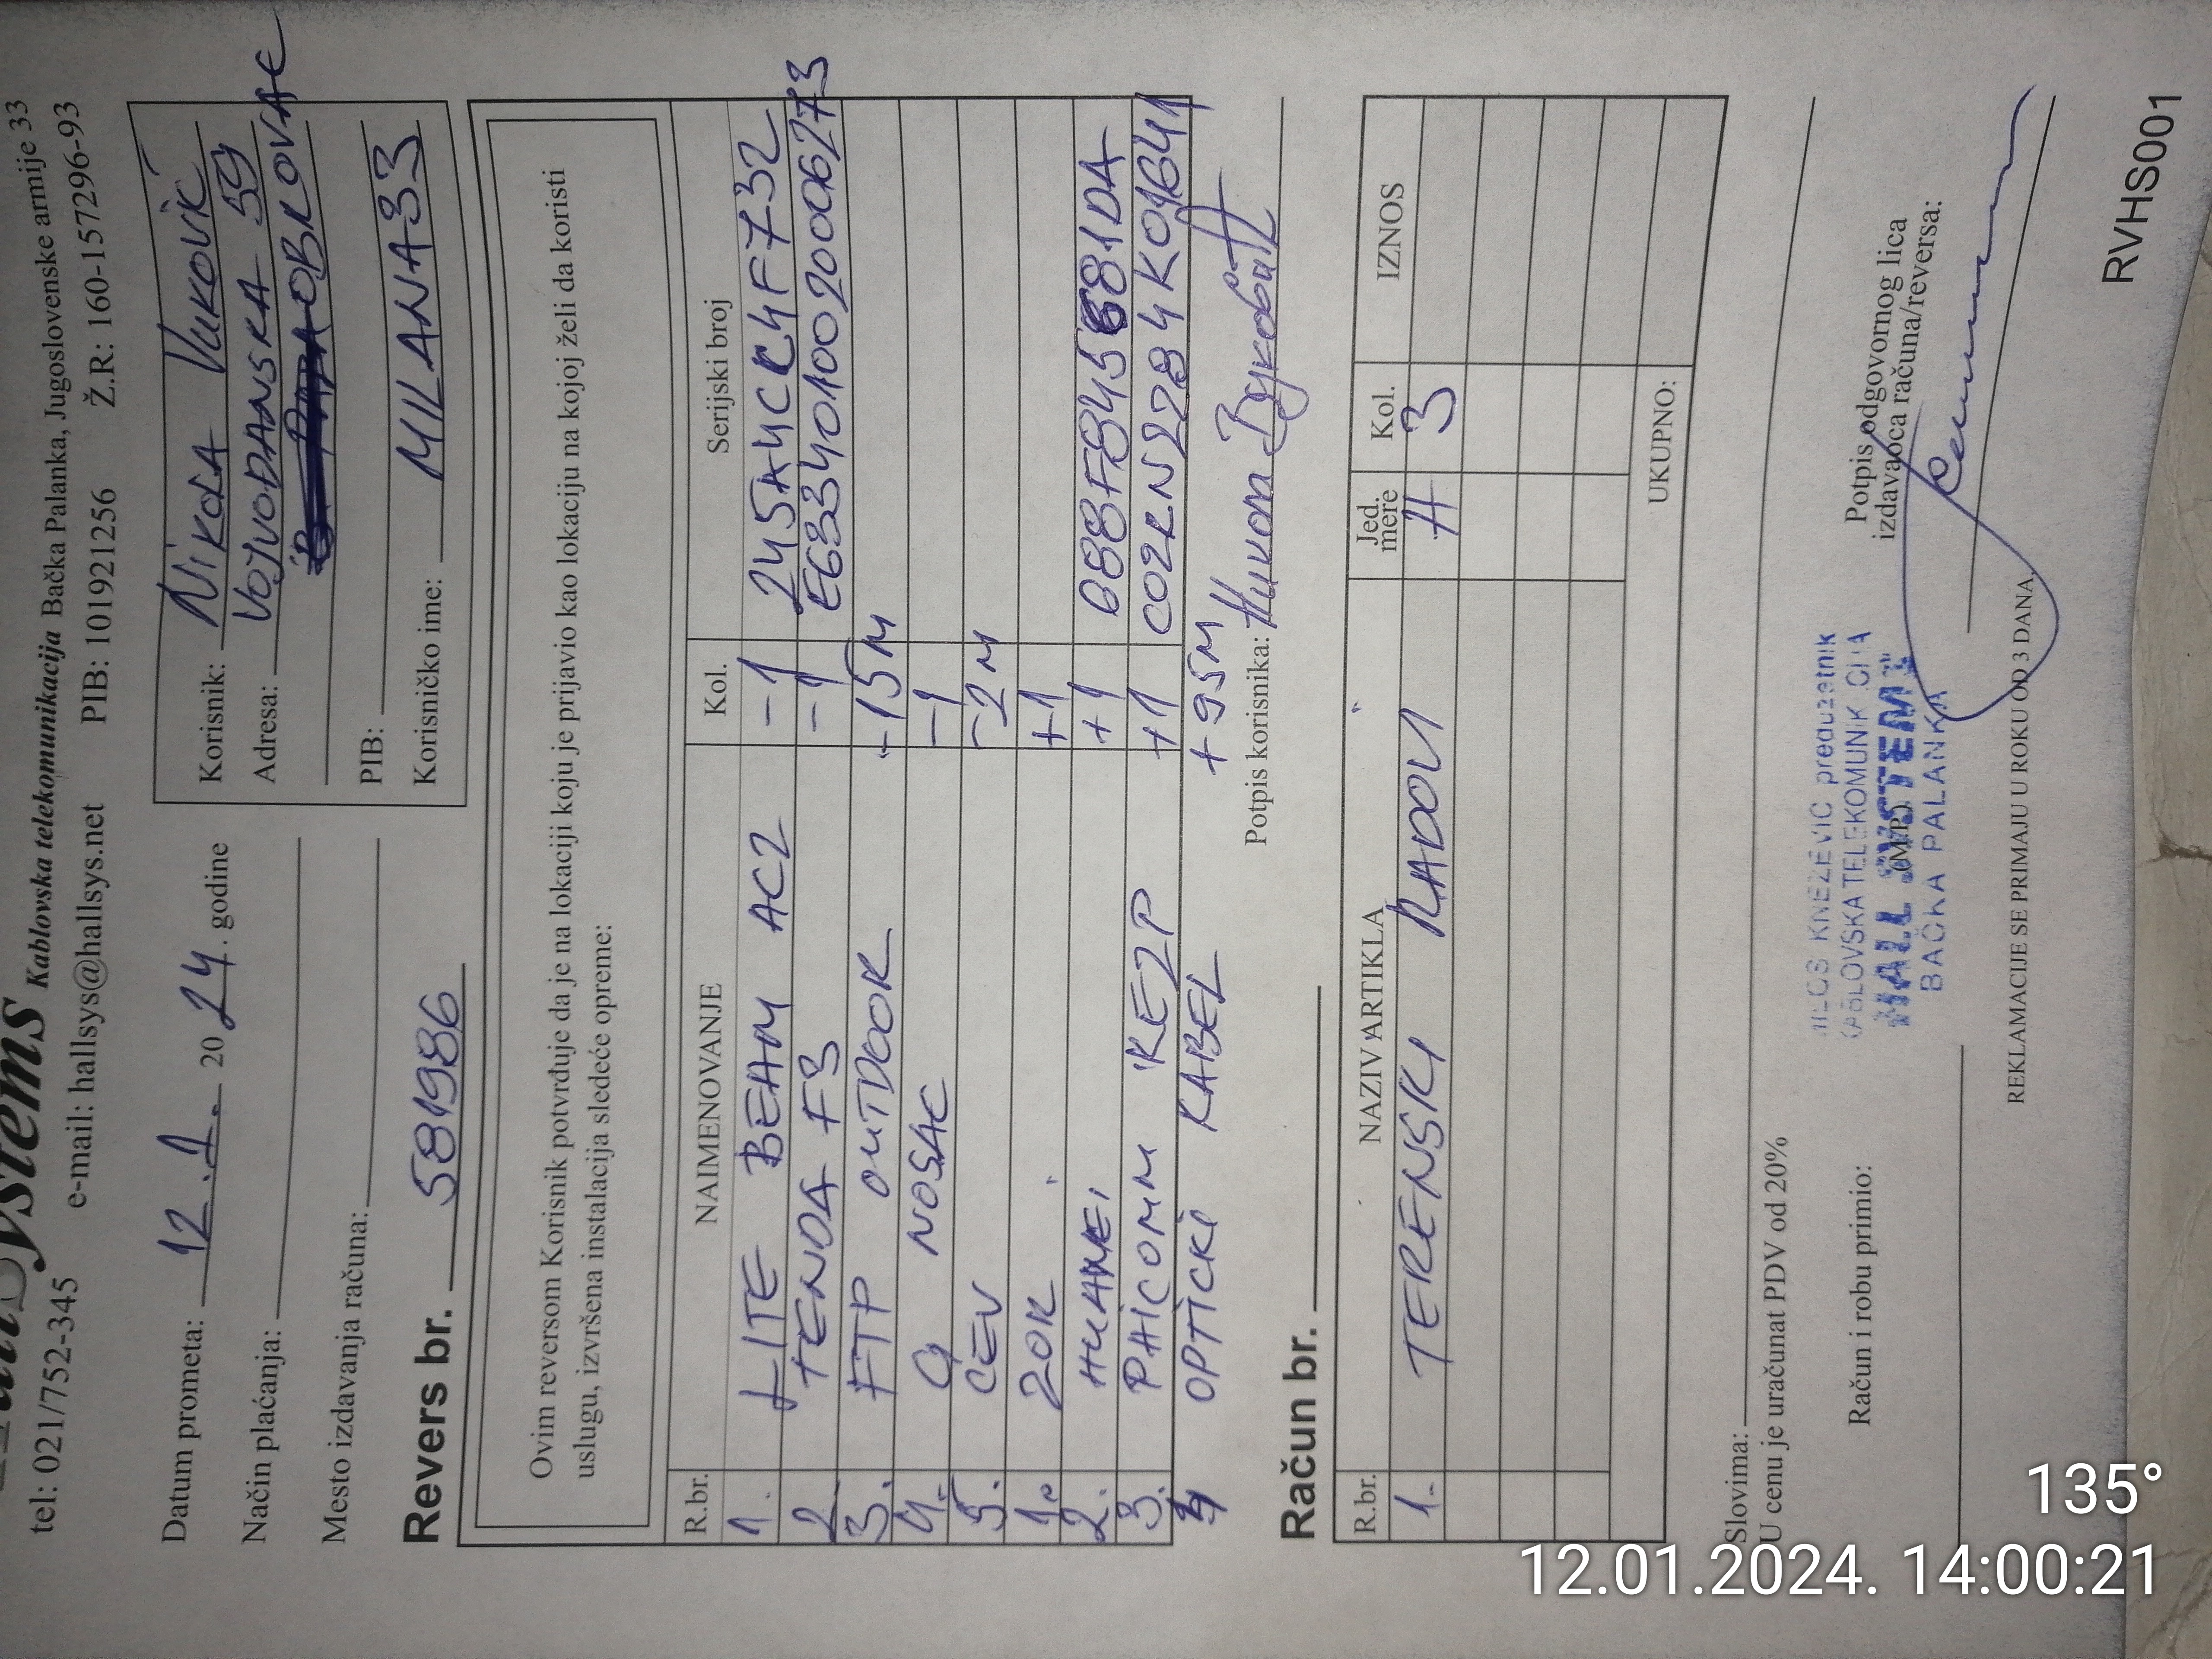 Systems Kablovska telekomunikacija Bačka Palanka, Jugoslovenske armije 33
tel: 021/752-345 e-mail: hallsys@hallsys.net PIB: 101921256 Ž.R: 160-157296-93
Datum prometa: 12.1. 2024. godine
Način plaćanja:
Mesto izdavanja računa:
Revers br. 581986
Korisnik: Nikola Vuković
Adresa: VOJVOĐANSKA 59
OBROVAC
PIB:
Korisničko ime: MILANA33
Ovim reversom Korisnik potvrđuje da je na lokaciji koju je prijavio kao lokaciju na kojoj želi da koristi
uslugu, izvršena instalacija sledeće opreme:
R.br. NAIMENOVANJE Kol. Serijski broj
1. LITE BEAM AC2 -1 245A4CC4F732
2. TENDA F3 -1 E6334010020006273
3. FTP OUTDOOR -15M
4. Q NOSAC -1
5. CEV -2M
1. ZOK +1
2. HUAWEI +1 088FB456881DA
3. PHICOMM KE2P +1 CO2RN2284K01641
4 OPTICKI KABEL +95M
Potpis korisnika: Никола Вуковић
Račun br.
R.br. NAZIV ARTIKLA Jed. mere Kol. IZNOS
1. TERENSKI RADOVI H 3
UKUPNO:
Slovima:
U cenu je uračunat PDV od 20%
Račun i robu primio:
MILOŠ KNEŽEVIĆ preduzetnik
KABLOVSKA TELEKOMUNIKACIJA
"HALL SYSTEMS"
BAČKA PALANKA
(M.P.)
Potpis odgovornog lica
izdavaoca računa/reversa:
REKLAMACIJE SE PRIMAJU U ROKU OD 3 DANA.
RVHS001
135°
12.01.2024. 14:00:21